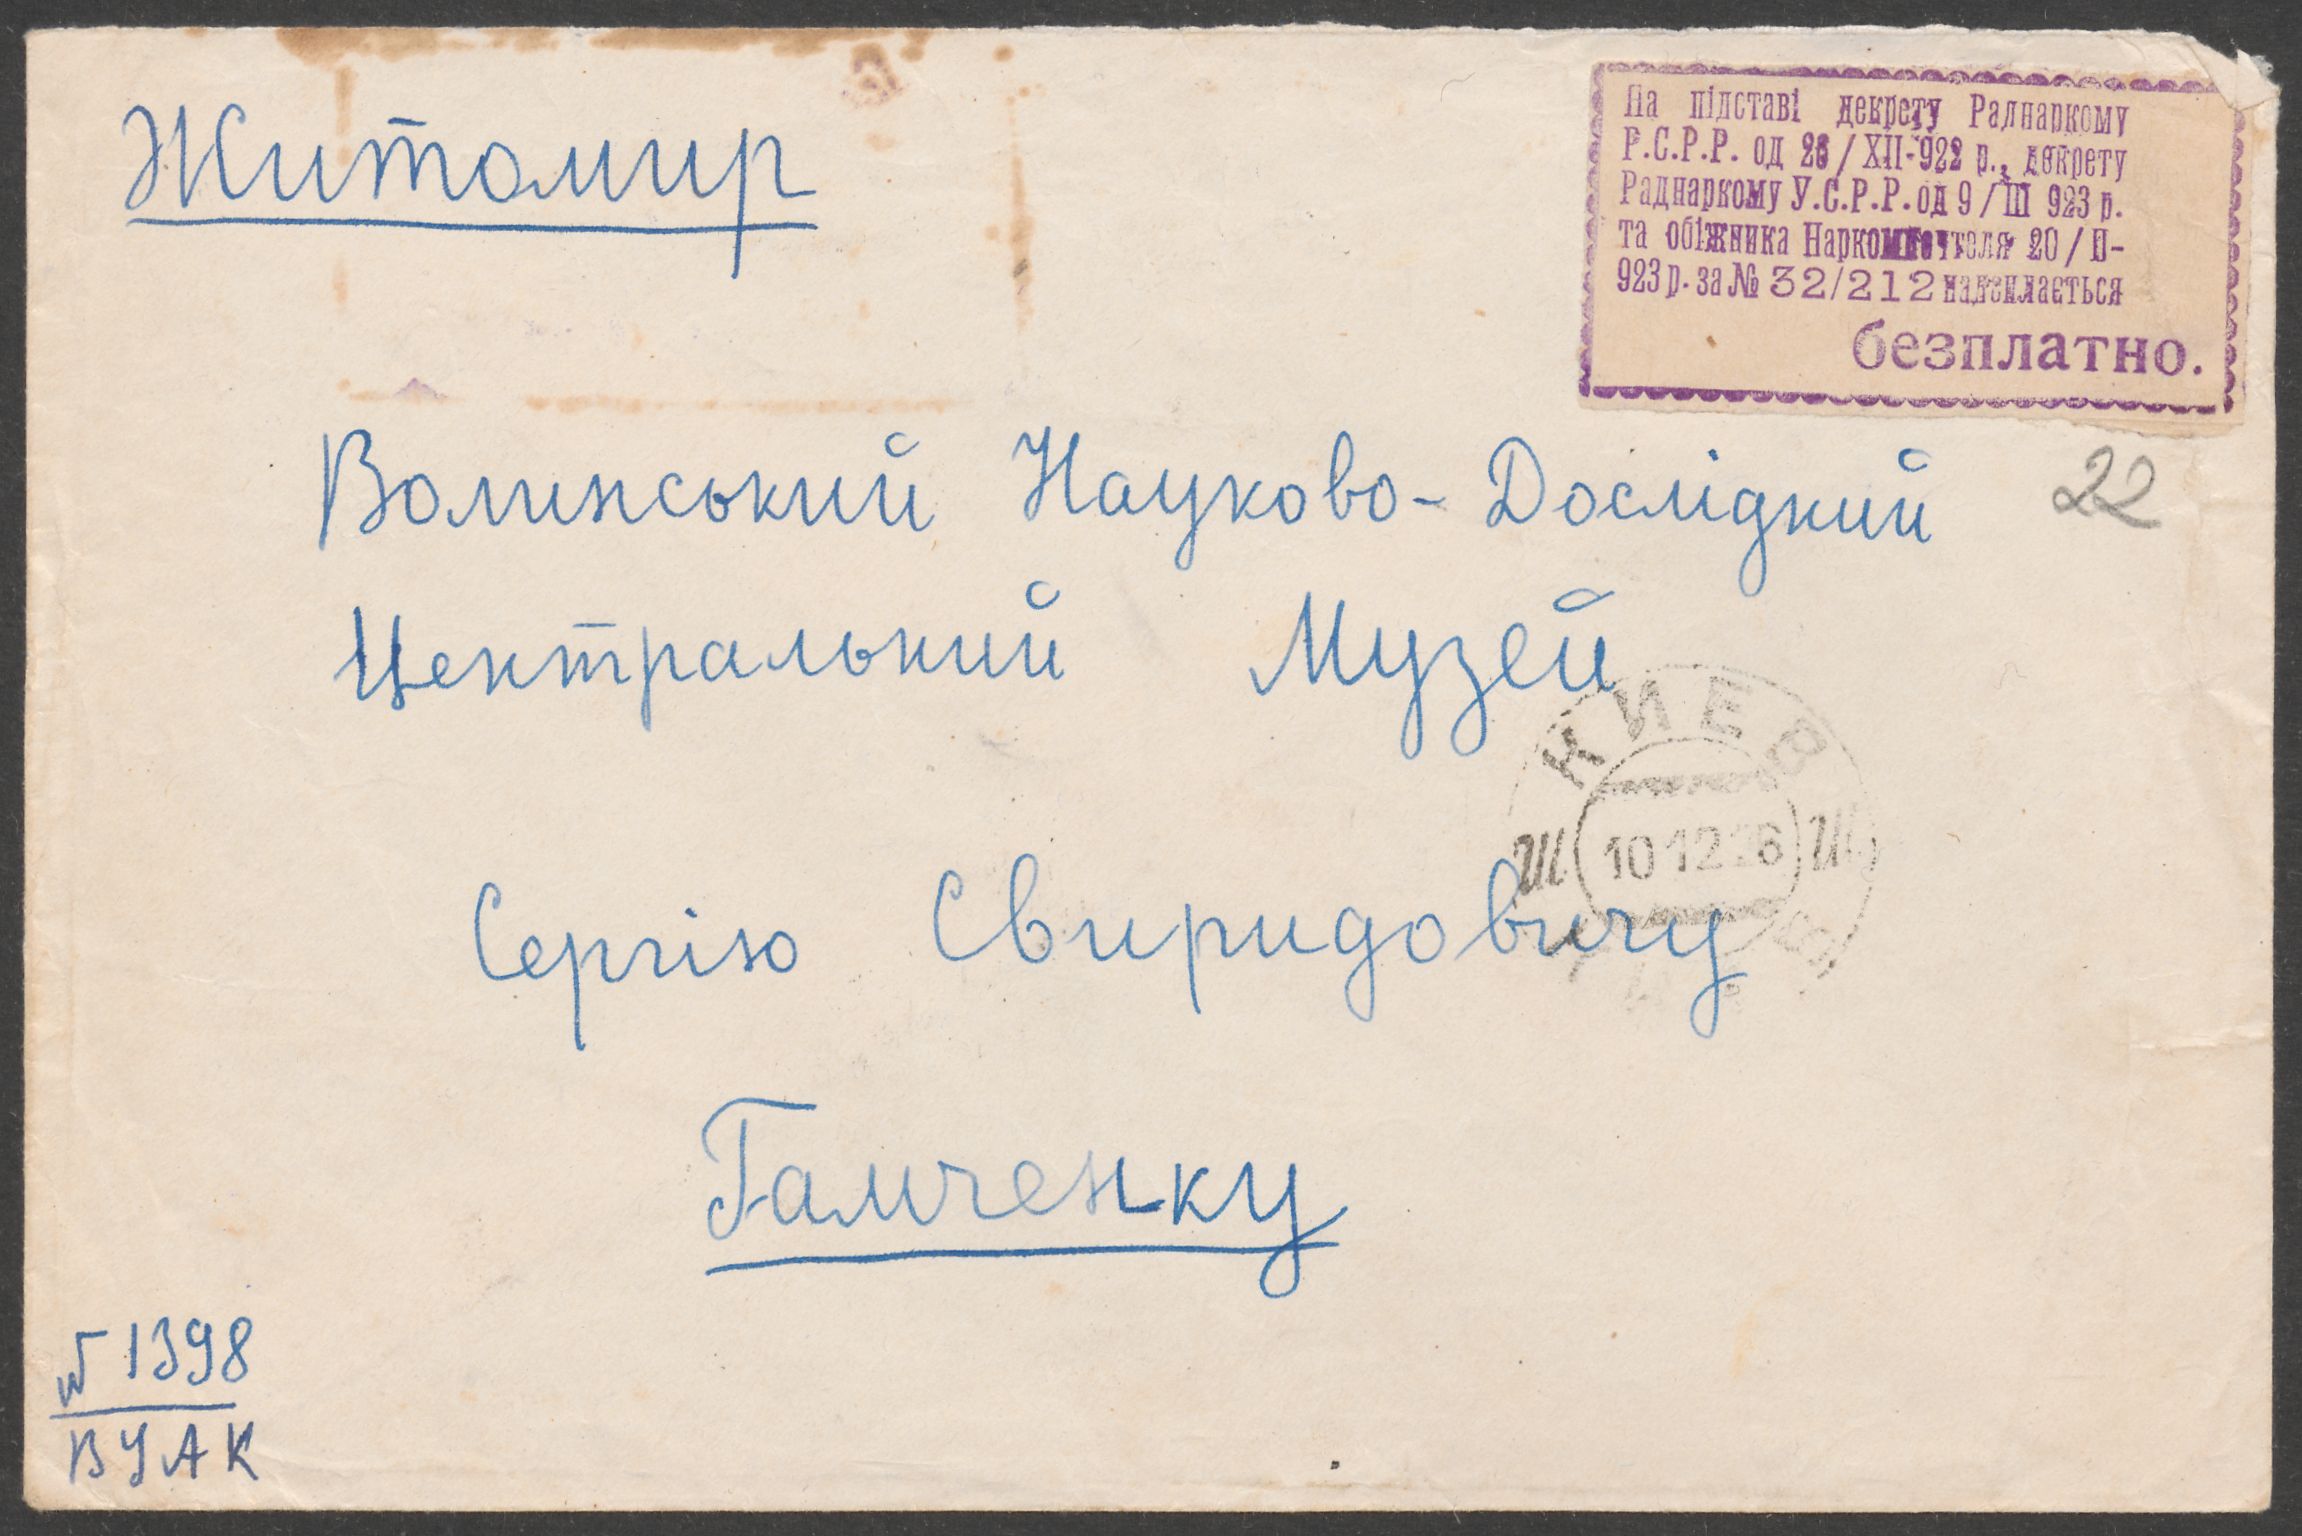 Житомир
На підставі декрету Раднаркому
Р.С.Р.Р. од 26/XII-922 р., декрету
Раднаркому У.С.Р.Р. од 9/III 923 р.
та обіжника Наркомпочтеля 20/II-
923 р. за № 32/212 надсилається
безплатно.
Волинський Науково-Дослідний
22
Центральний Музей
КИЕВ
10 12 26
Сергію Свиридовичу
Гамченку
№ 1398
ВУАК